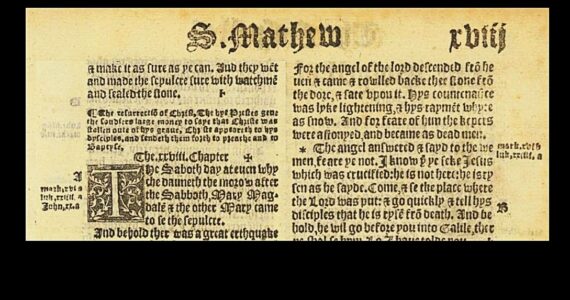 S. Mathew
xviij
& make it as sure as ye can. And they wēt
and made the sepulcre sure with watchmē
and sealed the stone.
¶ The resurrectiō of Christ. The hye Prestes geue
the soudiers large money to saye that Christ was
stollen oute of hys graue. Christ appereth to hys
disciples, and sendeth them forth to preache and to
Baptyse.
The .xxviii. Chapter
A
mark.xvi a
luk.xxiiii. a
John.xx.a
The Saboth day at euen why
che dauneth the morow after
the Sabboth, Mary Mag-
dale & the other Mary came
to se the sepulcre.
And behold ther was a great erthquake
For the angel of the lord descended frō he
uen & came & rowlled backe ther stone frō
the dore, & sate vpon it. Hys countenaūce
was lyke lightening, & hys raymēt whyte
as snow. And for feare of him the kepers
were astonyed, and became as dead men.
* The angel answered & sayd to the we
men, feare ye not. I know ꝑ ye seke Jesus
which was crucified: he is not here: he is ry
sen as he sayde. Come, & se the place where
the Lord was put: & go quickly & tell hys
disciples that he is rysē frō death. And be
hold, he wil go before you into Galile, ther
mark.xvi a
luk.xxiiii. a
B